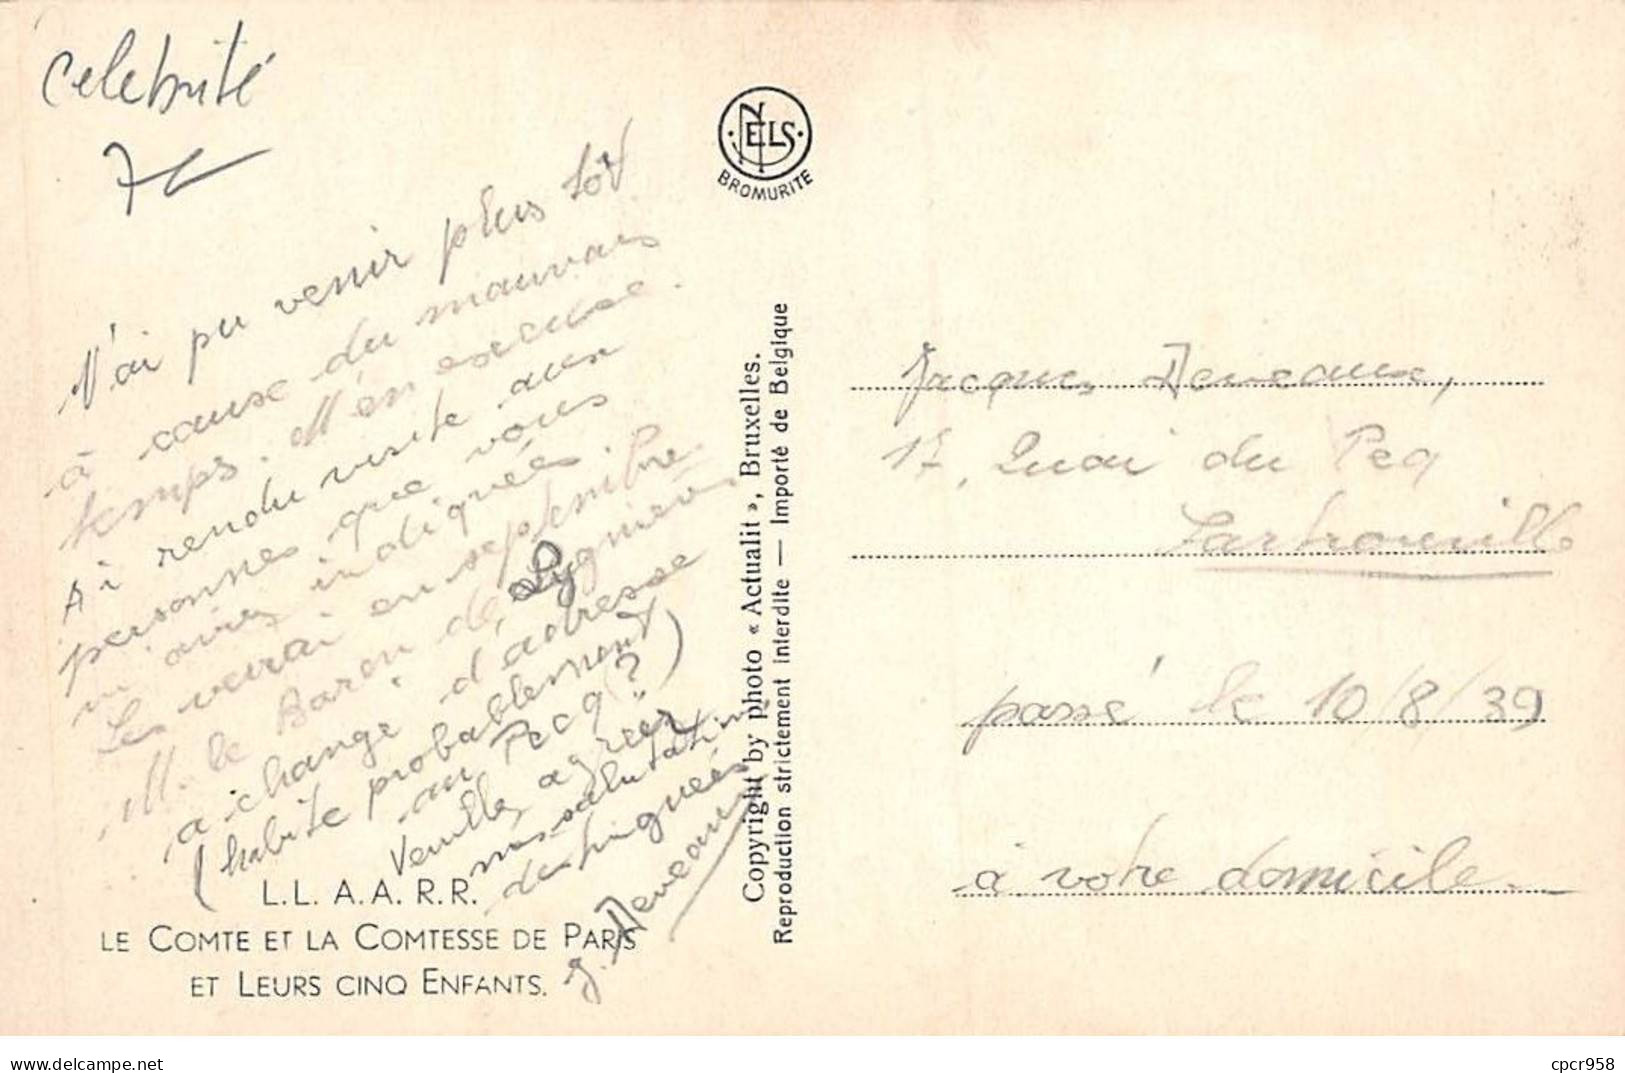 Celebrité
N'ai pu venir plus tôt
à cause du mauvais
temps. M'en excuse.
Ai rendu visite aux
personnes que vous
m'aviez indiquées.
Les verrai en septembre.
M. le Baron de
a changé d'adresse
(habite probablement
au Pecq?)
Veuillez agréer
mes salutations
distinguées
J. Deveaux
L.L. A.A. R.R.
LE COMTE ET LA COMTESSE DE PARIS
ET LEURS CINQ ENFANTS.
NELS
BROMURITE
Copyright by photo « Actualit », Bruxelles.
Reproduction strictement interdite — Importé de Belgique
Jacques Deveaux,
17, Quai du Pecq
Sartrouville
passé le 10/8/39
à votre domicile.
delcampe.net
cpcr958